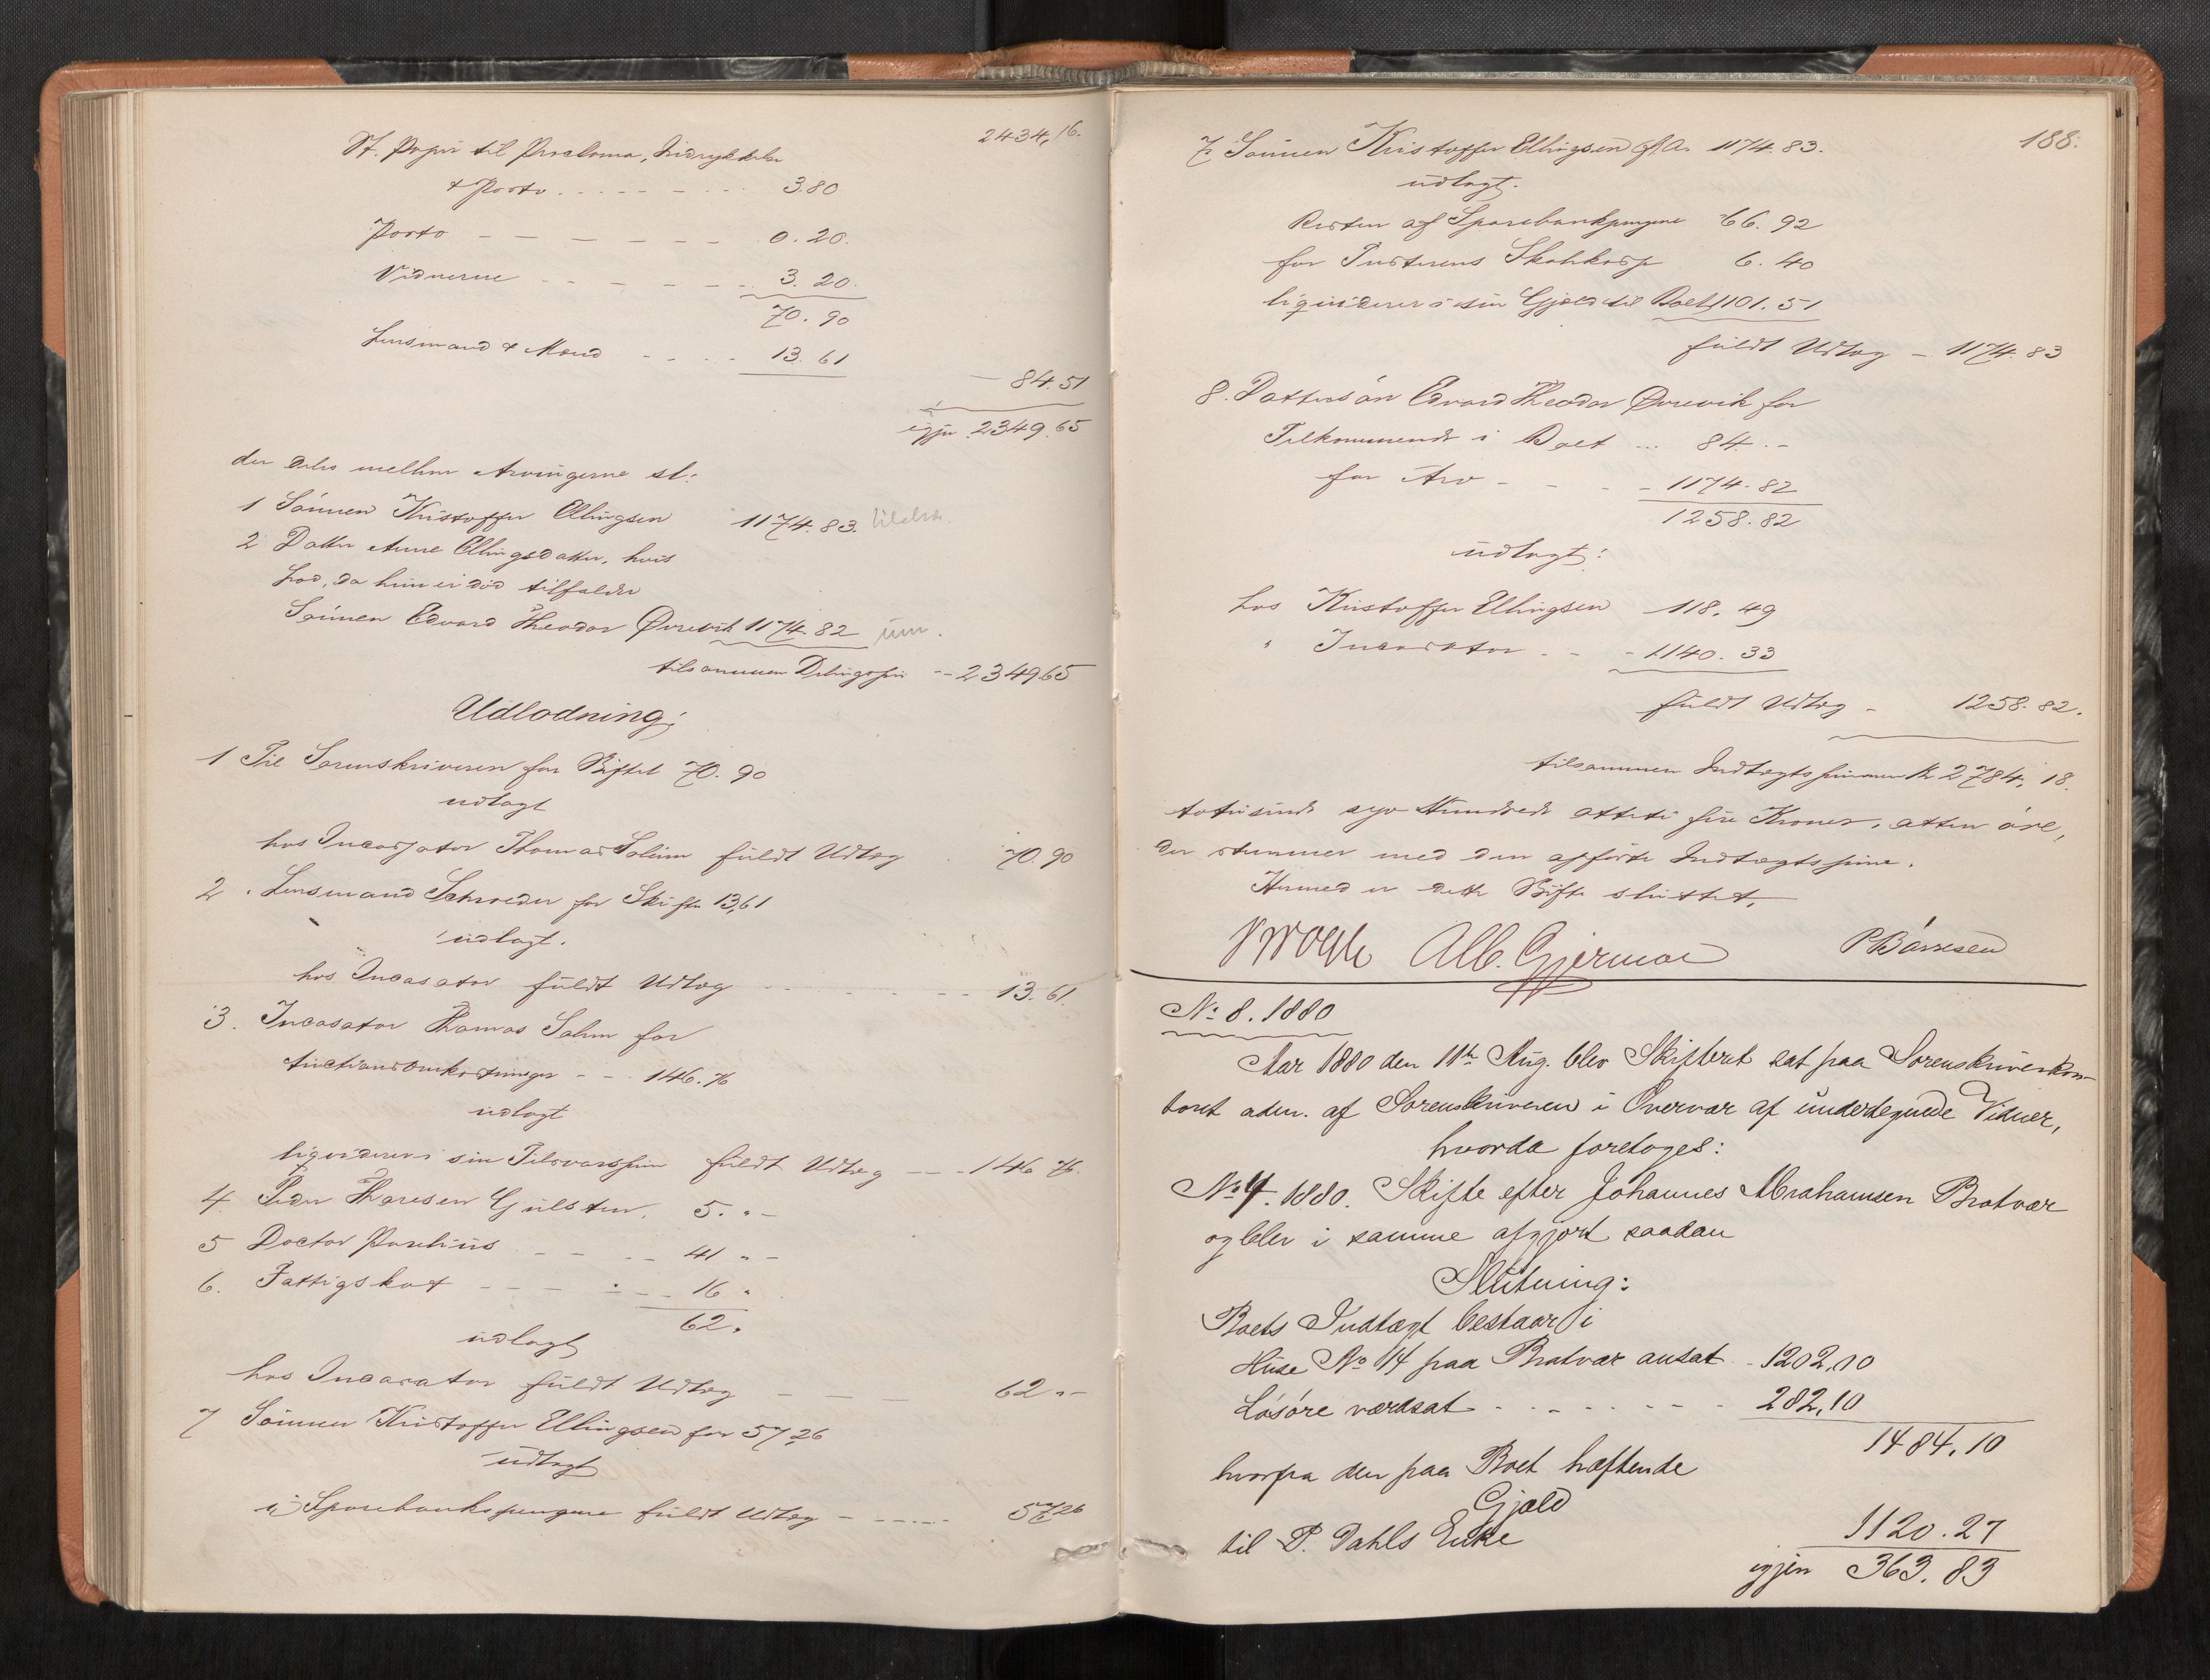 2434,16.
St. Papir til Proclama, Indrykkelse
& Porto - - - 3.80
Porto - - - 0.20.
Vidnerne - - - 3.20.
70.90
Lensmand & Mænd - - - 13.61
84.51
igjen 2349.65
der deles mellem Arvingerne sl:
1 Sönnen Kristoffer Ellingsen 1174.83.
2 Datter Anne Ellingsdatter, hvis
Lod, da hun er död tilfalder
Sönnen Edvard Theodor Ørevik 1174.82
tilsammen Delingssum - 2349 65
Udlodning;
1 Til Sorenskriveren for Skiftet 70.90
udlagt
hos Incassator Thomas Solem fuldt Udlæg 70.90
2. Lensmand Schrøder for Skifte 13,61
udlagt.
hos Incasator fuldt Udlæg - - - 13.61.
3. Incasator Thomas Solem for
Auctionsomkostninger - - 146.76
udlagt
liqviderer i sin Tilsvarssum fuldt Udlæg - - 146 76.
4. Peder Thoresen Gulsten. 5. " -
5 Doctor Puselius - - - 41 " -
6. Fattigskat - - - 16 "
62 "
udlagt
hos Incasator fuldt Udlæg - - - 62 " -
7 Sönnen Kristoffer Ellingsen for 57,26
udlagt
i Sparebankspengene fuldt Udlæg - - - 57 26
188.
7. Sönnen Kristoffer Ellingsen f. A. 1174.83.
udlagt.
Resten af Sparebankpengene 66.92
for Pusterens Skatkorp 6.40
liqviderer i sin Gjæld til Boet 1101.51
fuldt Udlæg - 1174.83
8. Dattersön Edvard Theodor Ørevik for
Tilkommende i Boet ... 84. -
for Arv - - - 1174.82
1258.82
udlagt:
hos Kristoffer Ellingsen 118.49
" Incassator - - 1140.33
fuldt Udlæg - 1258.82.
tilsammen Indtægtssummen Kr 2784,18.
totusinde syv Hundrede otteti fire Kroner, atten öre,
der stemmer med den opförte Indtægtssum.
Hermed er dette Skifte sluttet.
Alb. Gjermoe P Börresen
No 8. 1880
Aar 1880 den 11te Aug. blev Skifteret sat paa Sorenskriverkon-
toret adm. af Sorenskriveren i Overvær af undertegnede Vidner,
hvorda foretoges:
No 4. 1880. Skifte efter Johannes Abrahamsen Bratvær
og blev i samme afgjort saadan
Slutning:
Boets Indtægt bestaar i
Huse No 14 paa Bratvær ansat - 1202,00
Lösöre værdsat - - - 282,10
1484,10
hvorfra den paa Boet hæftende
Gjæld
til P. Dahls Enke 1120.27
igjen 363.83